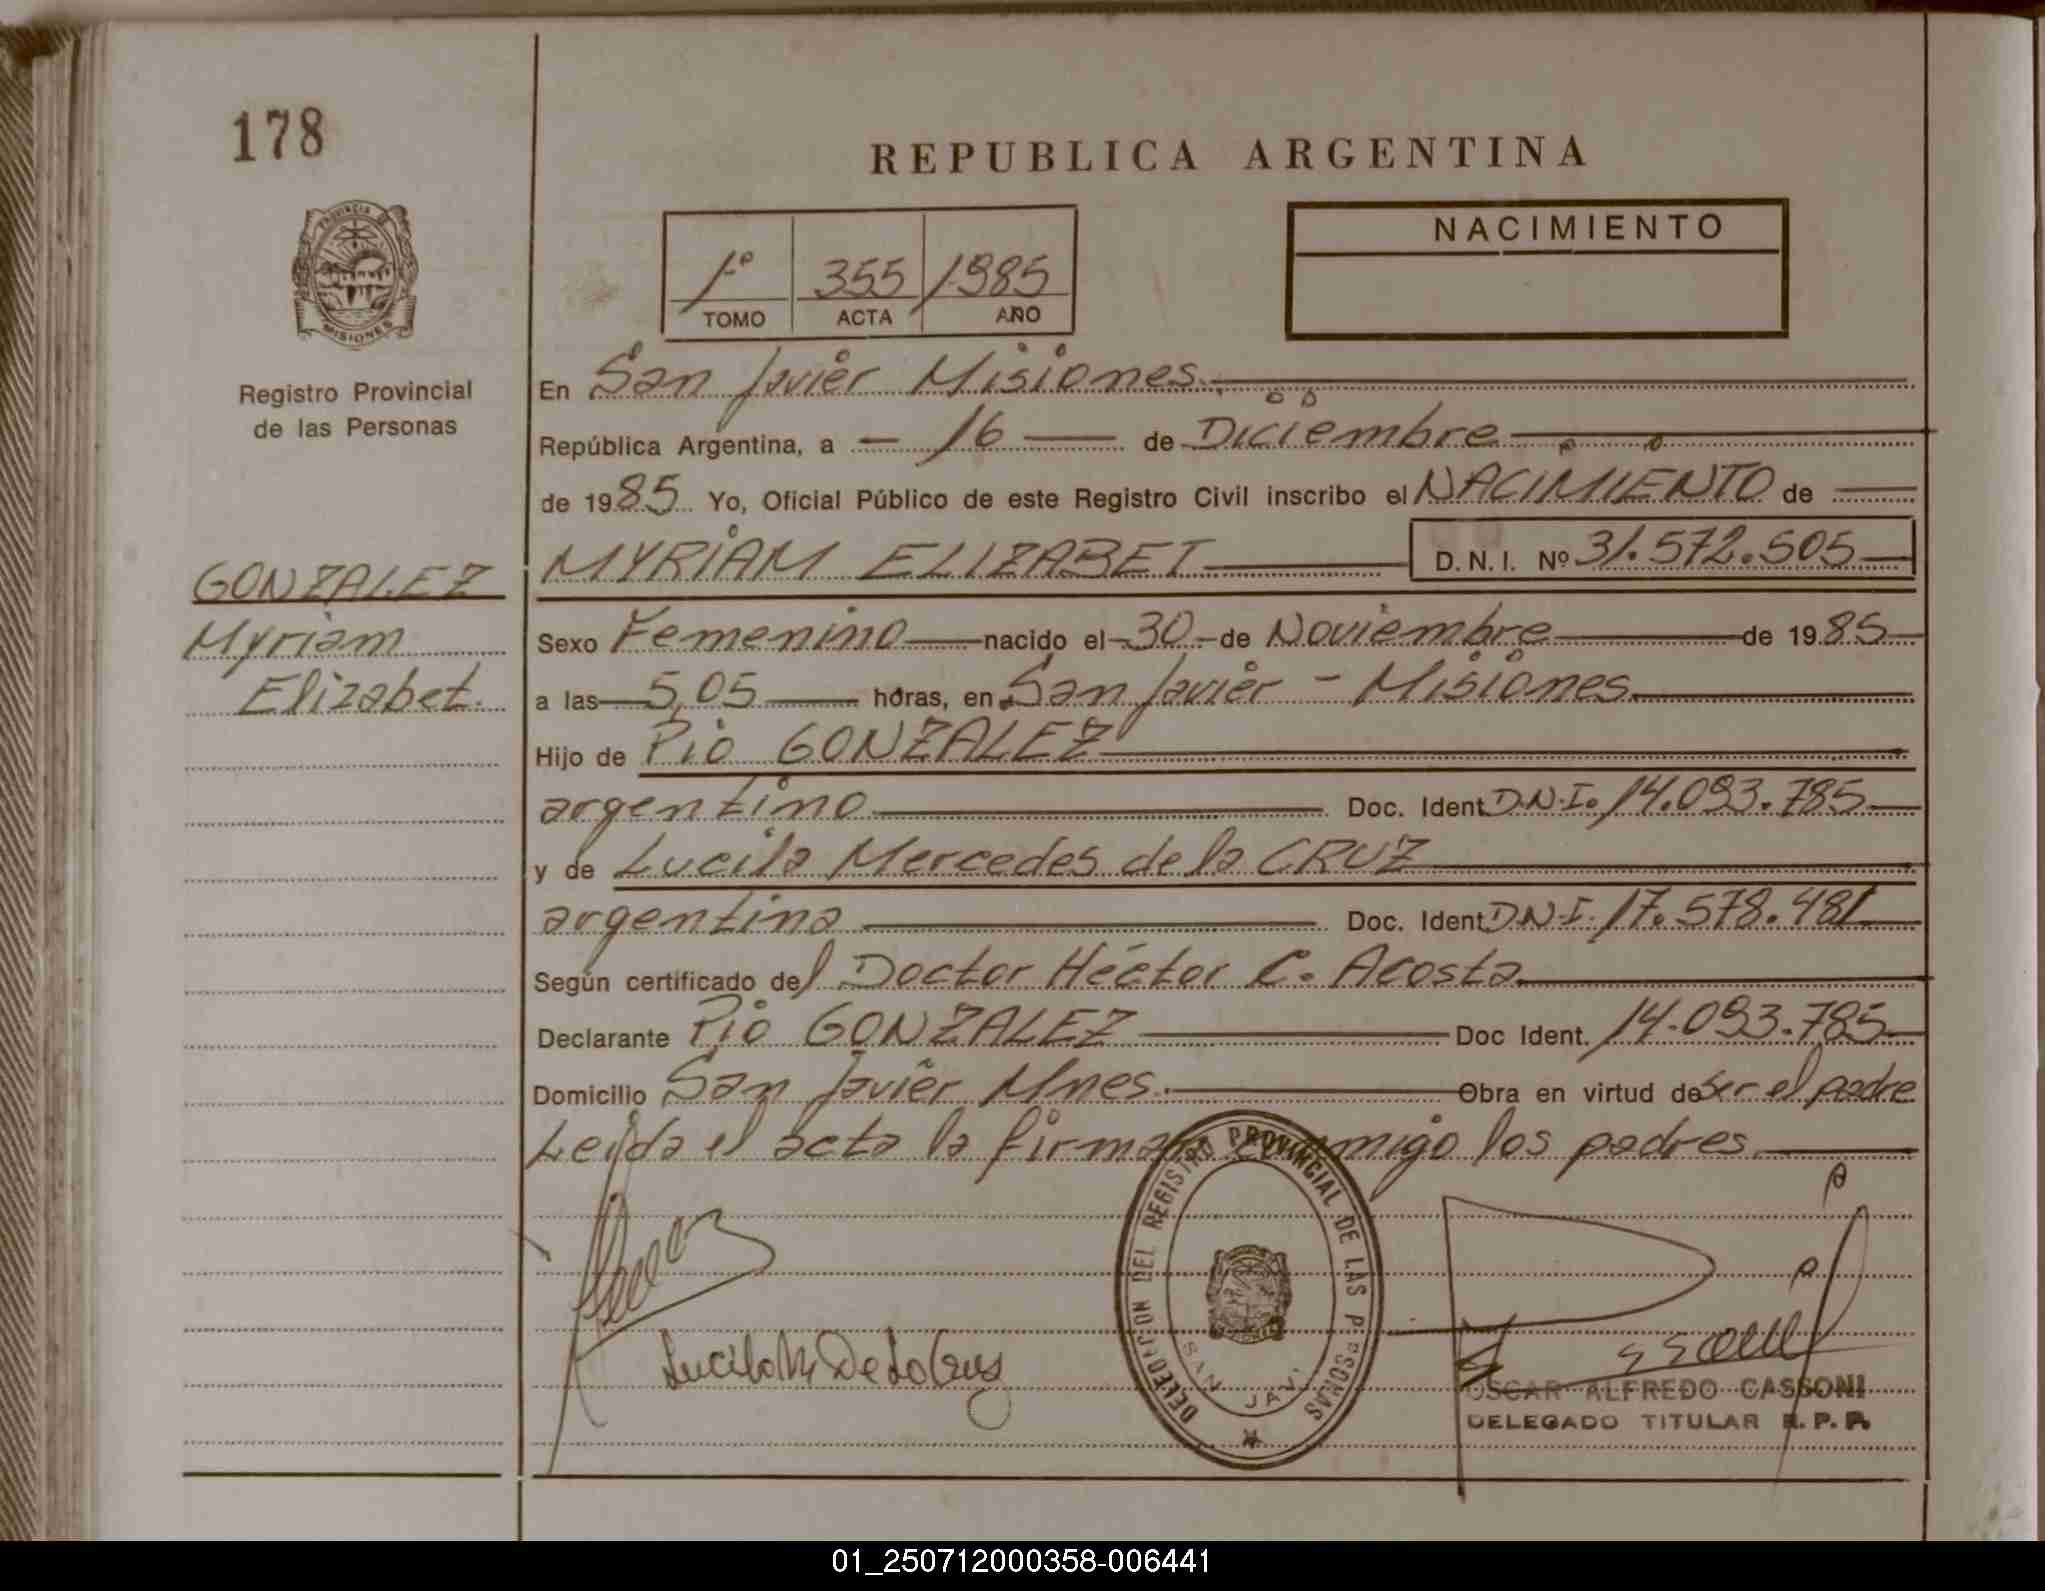 178
REPUBLICA ARGENTINA
PROVINCIA D
MISIONES
Registro Provincial
de las Personas
1º 355 1985
TOMO ACTA AÑO
NACIMIENTO
En San Javier Misiones.
República Argentina, a — 16 — de Diciembre
de 1985 Yo, Oficial Público de este Registro Civil inscribo el NACIMIENTO de
MYRIAM ELIZABET D.N.I. Nº 31.572.505
GONZALEZ
Myriam
Elizabet.
Sexo Femenino nacido el 30 de Noviembre de 1985
a las 5,05 horas, en San Javier - Misiones
Hijo de Pio GONZALEZ
argentino Doc. Ident. D.N.I. 14.093.785
y de Lucila Mercedes de la CRUZ
argentina Doc. Ident. D.N.I. 17.578.481
Según certificado del Doctor Héctor C. Acosta
Declarante Pio GONZALEZ Doc Ident. 14.093.785
Domicilio San Javier Mnes. Obra en virtud de ser el padre
Leida el acta la firman conmigo los padres
DELEGACION DEL REGISTRO PROVINCIAL DE LAS PERSONAS
SAN JAVI
Lucila M De La Cruz
OSCAR ALFREDO CASSONI
DELEGADO TITULAR R.P.P.
01_250712000358-006441